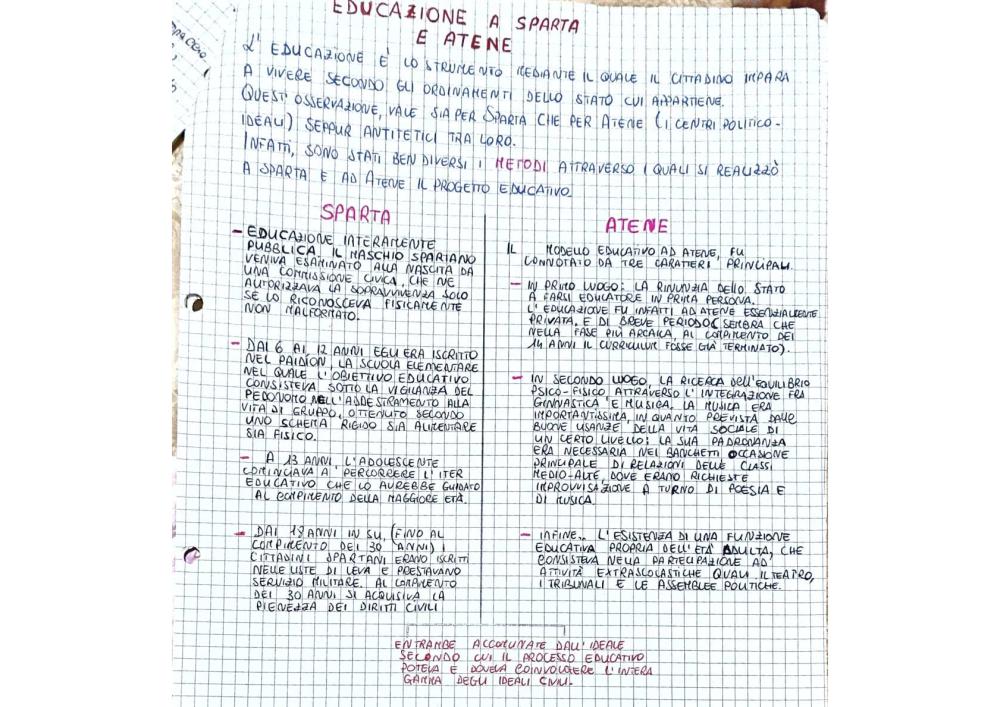 EDUCAZIONE A SPARTA
E ATENE
L'EDUCAZIONE È LO STRUMENTO MEDIANTE IL QUALE IL CITTADINO IMPARA
A VIVERE SECONDO GLI ORDINAMENTI DELLO STATO CUI APPARTIENE.
QUEST'OSSERVAZIONE, VALE SIA PER SPARTA CHE PER ATENE (I CENTRI POLITICO-
IDEALI) SEPPUR ANTITETICI TRA LORO.
INFATTI, SONO STATI BEN DIVERSI I METODI ATTRAVERSO I QUALI SI REALIZZÒ
A SPARTA E AD ATENE IL PROGETTO EDUCATIVO.
SPARTA
- EDUCAZIONE INTERAMENTE
PUBBLICA. IL MASCHIO SPARTANO
VENIVA ESAMINATO ALLA NASCITA DA
UNA COMMISSIONE CIVICA, CHE NE
AUTORIZZAVA LA SOPRAVVIVENZA SOLO
SE LO RICONOSCEVA FISICAMENTE
NON MALFORMATO.
- DAI 6 AI 12 ANNI EGLI ERA ISCRITTO
NEL PAIDION, LA SCUOLA ELEMENTARE
NEL QUALE L'OBIETTIVO EDUCATIVO
CONSISTEVA, SOTTO LA VIGILANZA DEL
PEDONOMO NELL'ADDESTRAMENTO ALLA
VITA DI GRUPPO, OTTENUTO SECONDO
UNO SCHEMA RIGIDO SIA ALIMENTARE
SIA FISICO.
- A 13 ANNI, L'ADOLESCENTE
COMINCIAVA A PERCORRERE L'ITER
EDUCATIVO CHE LO AVREBBE GUIDATO
AL COMPIMENTO DELLA MAGGIORE ETÀ.
- DAI 18 ANNI IN SU, (FINO AL
COMPIMENTO DEI 30 ANNI) I
CITTADINI SPARTANI ERANO ISCRITTI
NELLE LISTE DI LEVA E PRESTAVANO
SERVIZIO MILITARE. AL COMPIMENTO
DEI 30 ANNI SI ACQUISIVA LA
PIENEZZA DEI DIRITTI CIVILI
ATENE
IL MODELLO EDUCATIVO AD ATENE, FU
CONNOTATO DA TRE CARATTERI PRINCIPALI.
- IN PRIMO LUOGO: LA RINUNZIA DELLO STATO
A FARSI EDUCATORE IN PRIMA PERSONA.
L'EDUCAZIONE FU INFATTI AD ATENE ESSENZIALMENTE
PRIVATA, E DI BREVE PERIODO (SEMBRA CHE
NELLA FASE PIÙ ARCAICA, AL COMPIMENTO DEI
14 ANNI IL CURRICULUM FOSSE GIÀ TERMINATO).
- IN SECONDO LUOGO, LA RICERCA DELL'EQUILIBRIO
PSICO-FISICO, ATTRAVERSO L'INTEGRAZIONE FRA
GINNASTICA E MUSICA. LA MUSICA ERA
IMPORTANTISSIMA, IN QUANTO PREVISTA DALLE
BUONE USANZE DELLA VITA SOCIALE DI
UN CERTO LIVELLO: LA SUA PADRONANZA
ERA NECESSARIA NEI BANCHETTI OCCASIONE
PRINCIPALE DI RELAZIONI DELLE CLASSI
MEDIO-ALTE, DOVE ERANO RICHIESTE
IMPROVVISAZIONE A TURNO DI POESIA E
DI MUSICA.
- INFINE.. L'ESISTENZA DI UNA FUNZIONE
EDUCATIVA PROPRIA DELL'ETÀ ADULTA, CHE
CONSISTEVA NELLA PARTECIPAZIONE AD
ATTIVITÀ EXTRASCOLASTICHE QUALI IL TEATRO,
I TRIBUNALI E LE ASSEMBLEE POLITICHE.
ENTRAMBE ACCOMUNATE DALL'IDEALE
SECONDO CUI IL PROCESSO EDUCATIVO
POTEVA E DOVEVA COINVOLGERE L'INTERA
GAMMA DEGLI IDEALI CIVILI.